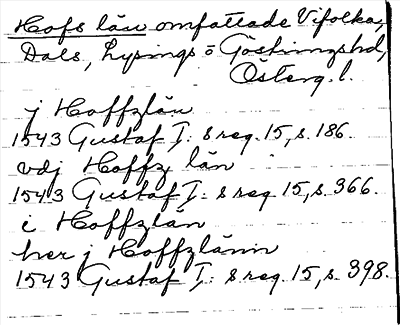 Hofs län omfattade Vifolka,
Dals, Lysings o Göstringshd,
Österg. l.
j Hoffzlän
1543 Gustaf I: s reg. 15, s. 186.
vdj Hoffz län
1543 Gustaf I: s reg. 15, s. 366.
i Hoffzlän
her j Hoffzlänn
1543 Gustaf I: s reg. 15, s. 398.